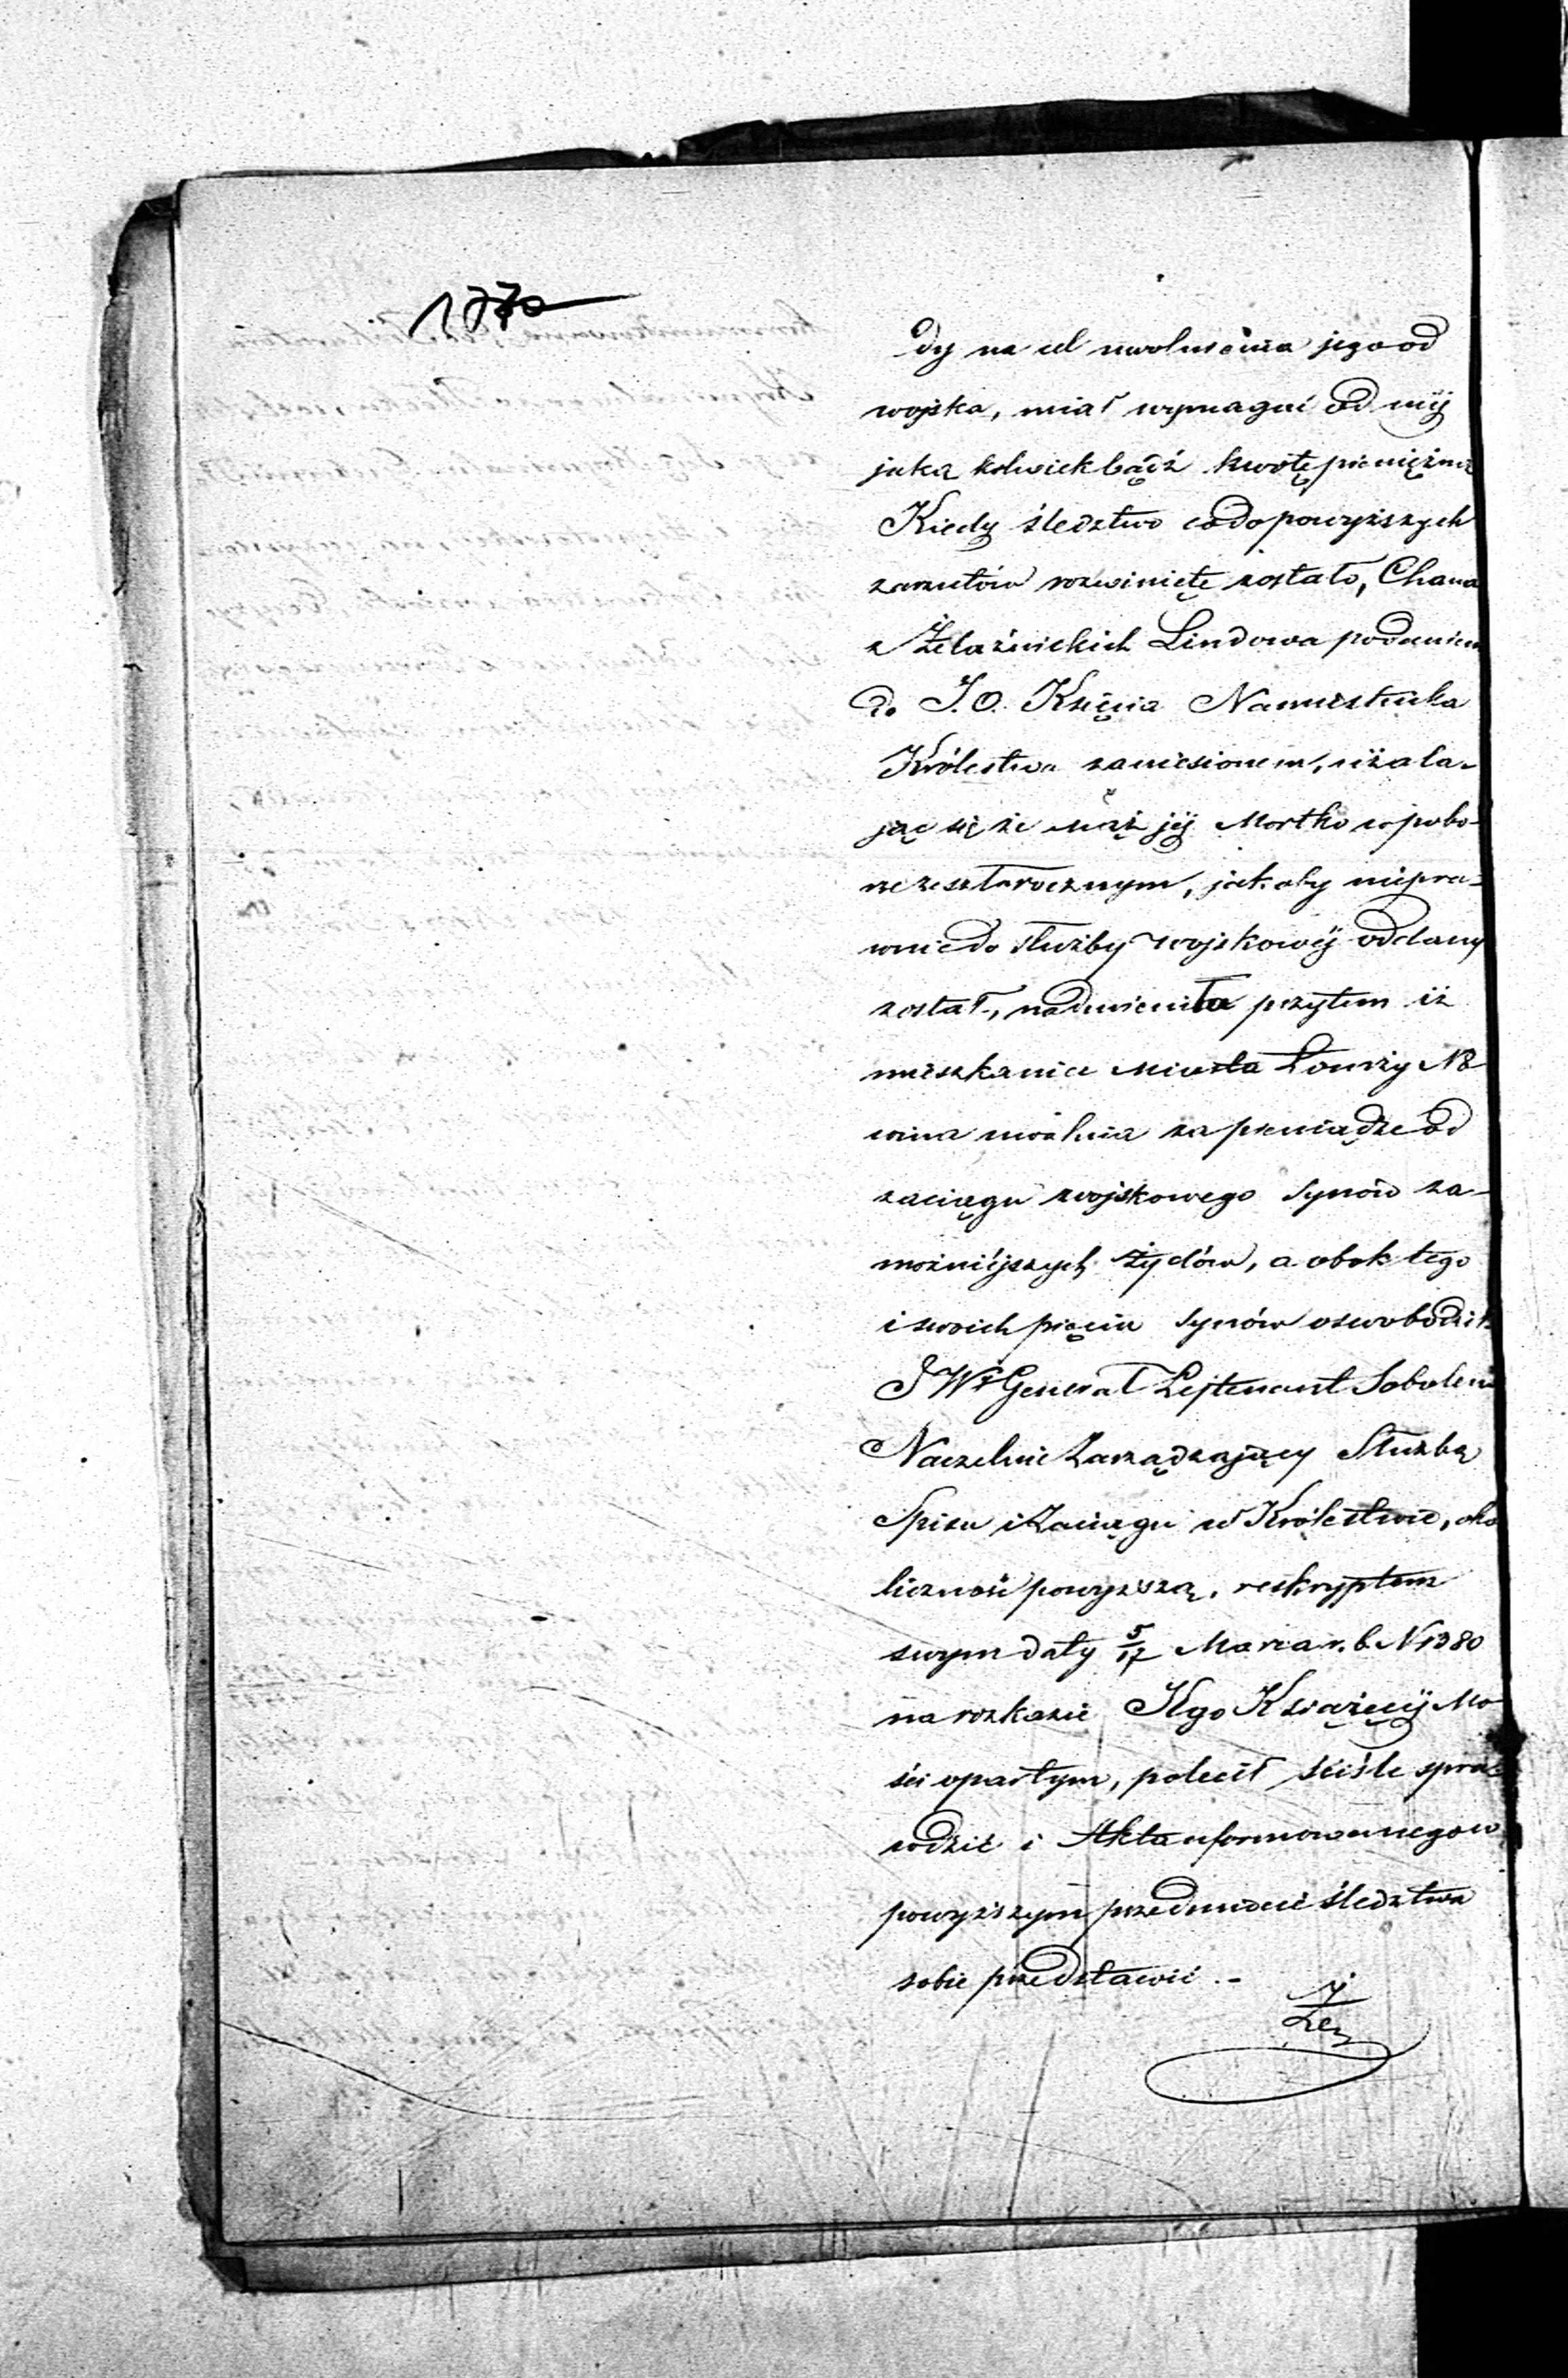 dy na cel uwolnienia jego od
wojska, miał wymagać od niéj
jaką kolwiek bądź kwotę pieniężną
Kiedy śledztwo co do powyższych
zarzutów rozwinięte zostało, Chana
z Żelaźnickich Lindowa podaniem
do J.O. Księcia Namiestnika
Królestwa zaniesionem, użala-
jąc się że mąż jéj Mortko w pobo-
rze zeszłorocznym, jakoby niepra-
wnie do służby wojskowéj oddany
został, nadmieniła przytem iż
mieszkaniec Miasta Łomży No
wina uwalnia za pieniądze od
zaciągu wojskowego synów za-
możniéjszych Żydów, a obok tego
i swoich pięciu synów oswobodził.
JWy Generał Lejtenant Sobolew
Naczelnie Zarządzający Służbą
Spisu i Zaciągu w Królestwie, oko
liczność powyższą, reskryptem
swym daty 5/17 Marca r. b. N 1380
na rozkazie Jego Książęcéj Mo
ści opartym, polecił ściśle spraw
wdzić i Akta uformowanego w
powyższym przedmiocie śledztwa
sobie przedstawić.-